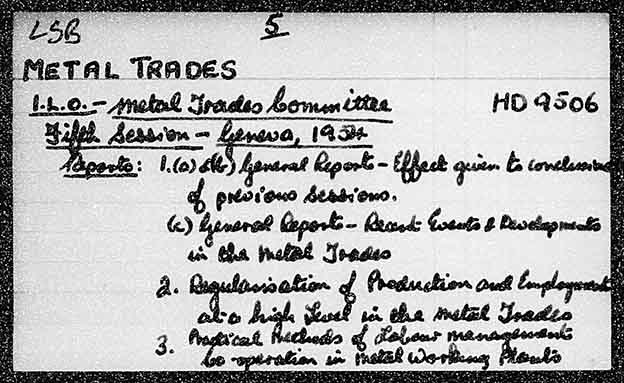 LSB 5
METAL TRADES
I.L.O. - Metal Trades Committee HD 9506
Fifth Session - Geneva, 1954
Reports: 1. (a) & (b) General Reports - Effect given to conclusions
of previous sessions.
(c) General Reports - Recent Events & Developments
in the Metal Trades
2. Regularisation of Production and Employment
at a high level in the Metal Trades
3. Practical Methods of Labour Management
Co-operation in Metal Working Plants